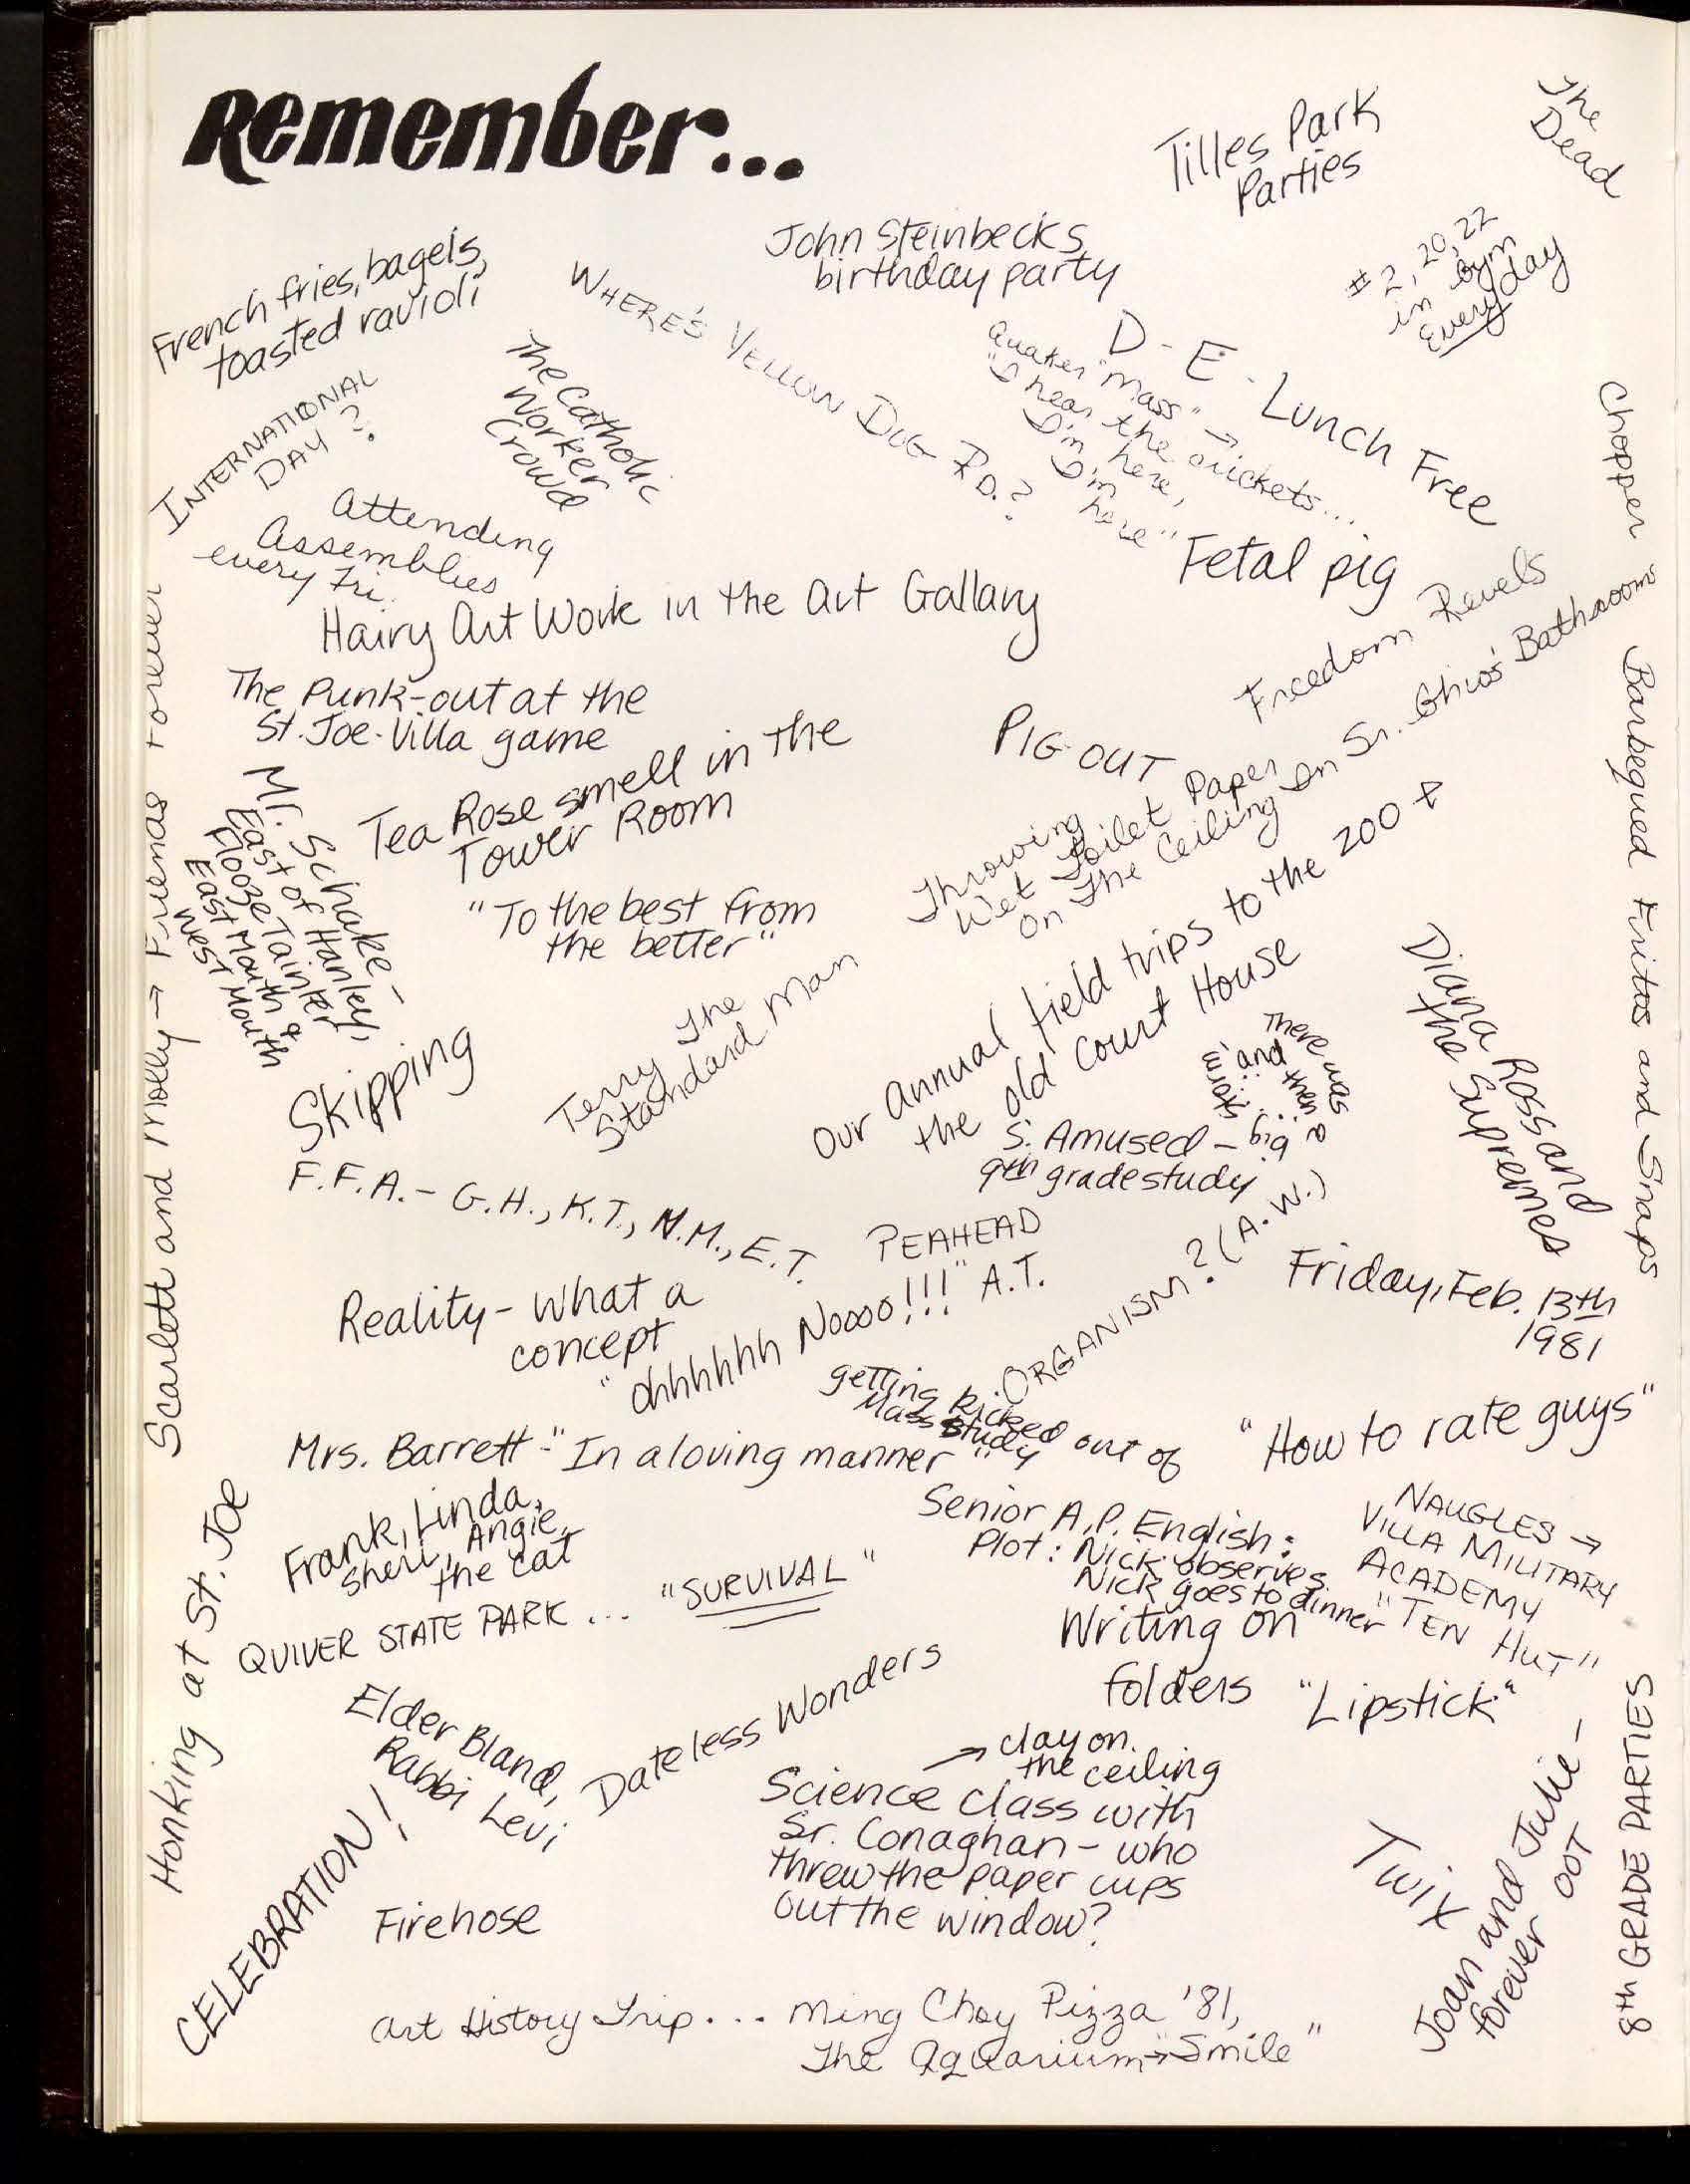 Remember...
Tilles Park
Parties
The
Dead
John Steinbecks
birthday party
# 2, 20, 22
in Gym
Everyday
French fries, bagels,
toasted ravioli
WHERE'S YELLOW DOG RD.?
D-E-Lunch Free
Quaker "Mass" →
"I hear the crickets...
I'm here,
I'm
here"
The Catholic
Worker
Crowd
INTERNATIONAL
DAY?
Chopper
Attending
Assemblies
every Fri.
Fetal pig
Hairy Art Work in the Art Gallary
Freedom Revels
The Punk-out at the
St. Joe-Villa game
PIG OUT
Throwing
Wet Toilet Paper
On The Ceiling In Sr. Ghio's Bathroom
Tea Rose smell in the
Tower Room
Barbequed Fritos and Snaps
Mr. Schake-
East of Hanley,
Flooze Tainter
East Mouth &
West Mouth
"To the best from
the better"
Scarlett and Molly → Friends Forever
Terry The
Standard Man
Our annual field trips to the zoo &
the old Court House
Diana Ross and
the Supremes
Skipping
There was
and then a
big
S. Amused -
9th grade study
F.F.A. - G.H., K.T., N.M., E.T.
PEAHEAD
"Ohhhhhh Noooo!!!" A.T.
ORGANISM? (A.W.)
Friday, Feb. 13th
1981
Reality - What a
concept
getting kicked out of
Mass study
"How to rate guys"
Mrs. Barrett - "In a loving manner"
Frank, Linda,
Sheri, Angie,
the cat
Senior A.P. English:
Plot: Nick observes
Nick goes to dinner
NAUGLES →
VILLA MILITARY
ACADEMY
"TEN HUT"
"SURVIVAL"
QUIVER STATE PARK...
Writing on
folders
"Lipstick"
Honking at St. Joe
Elder Bland,
Rabbi Levi
Dateless Wonders
→ clay on
the ceiling
Science class with
Sr. Conaghan - who
threw the paper cups
out the window?
Twix
Joan and Julie -
forever OOT
8th GRADE PARTIES
CELEBRATION!
Firehose
Art History Trip... Ming Choy Pizza '81,
The Aquarium → "Smile"